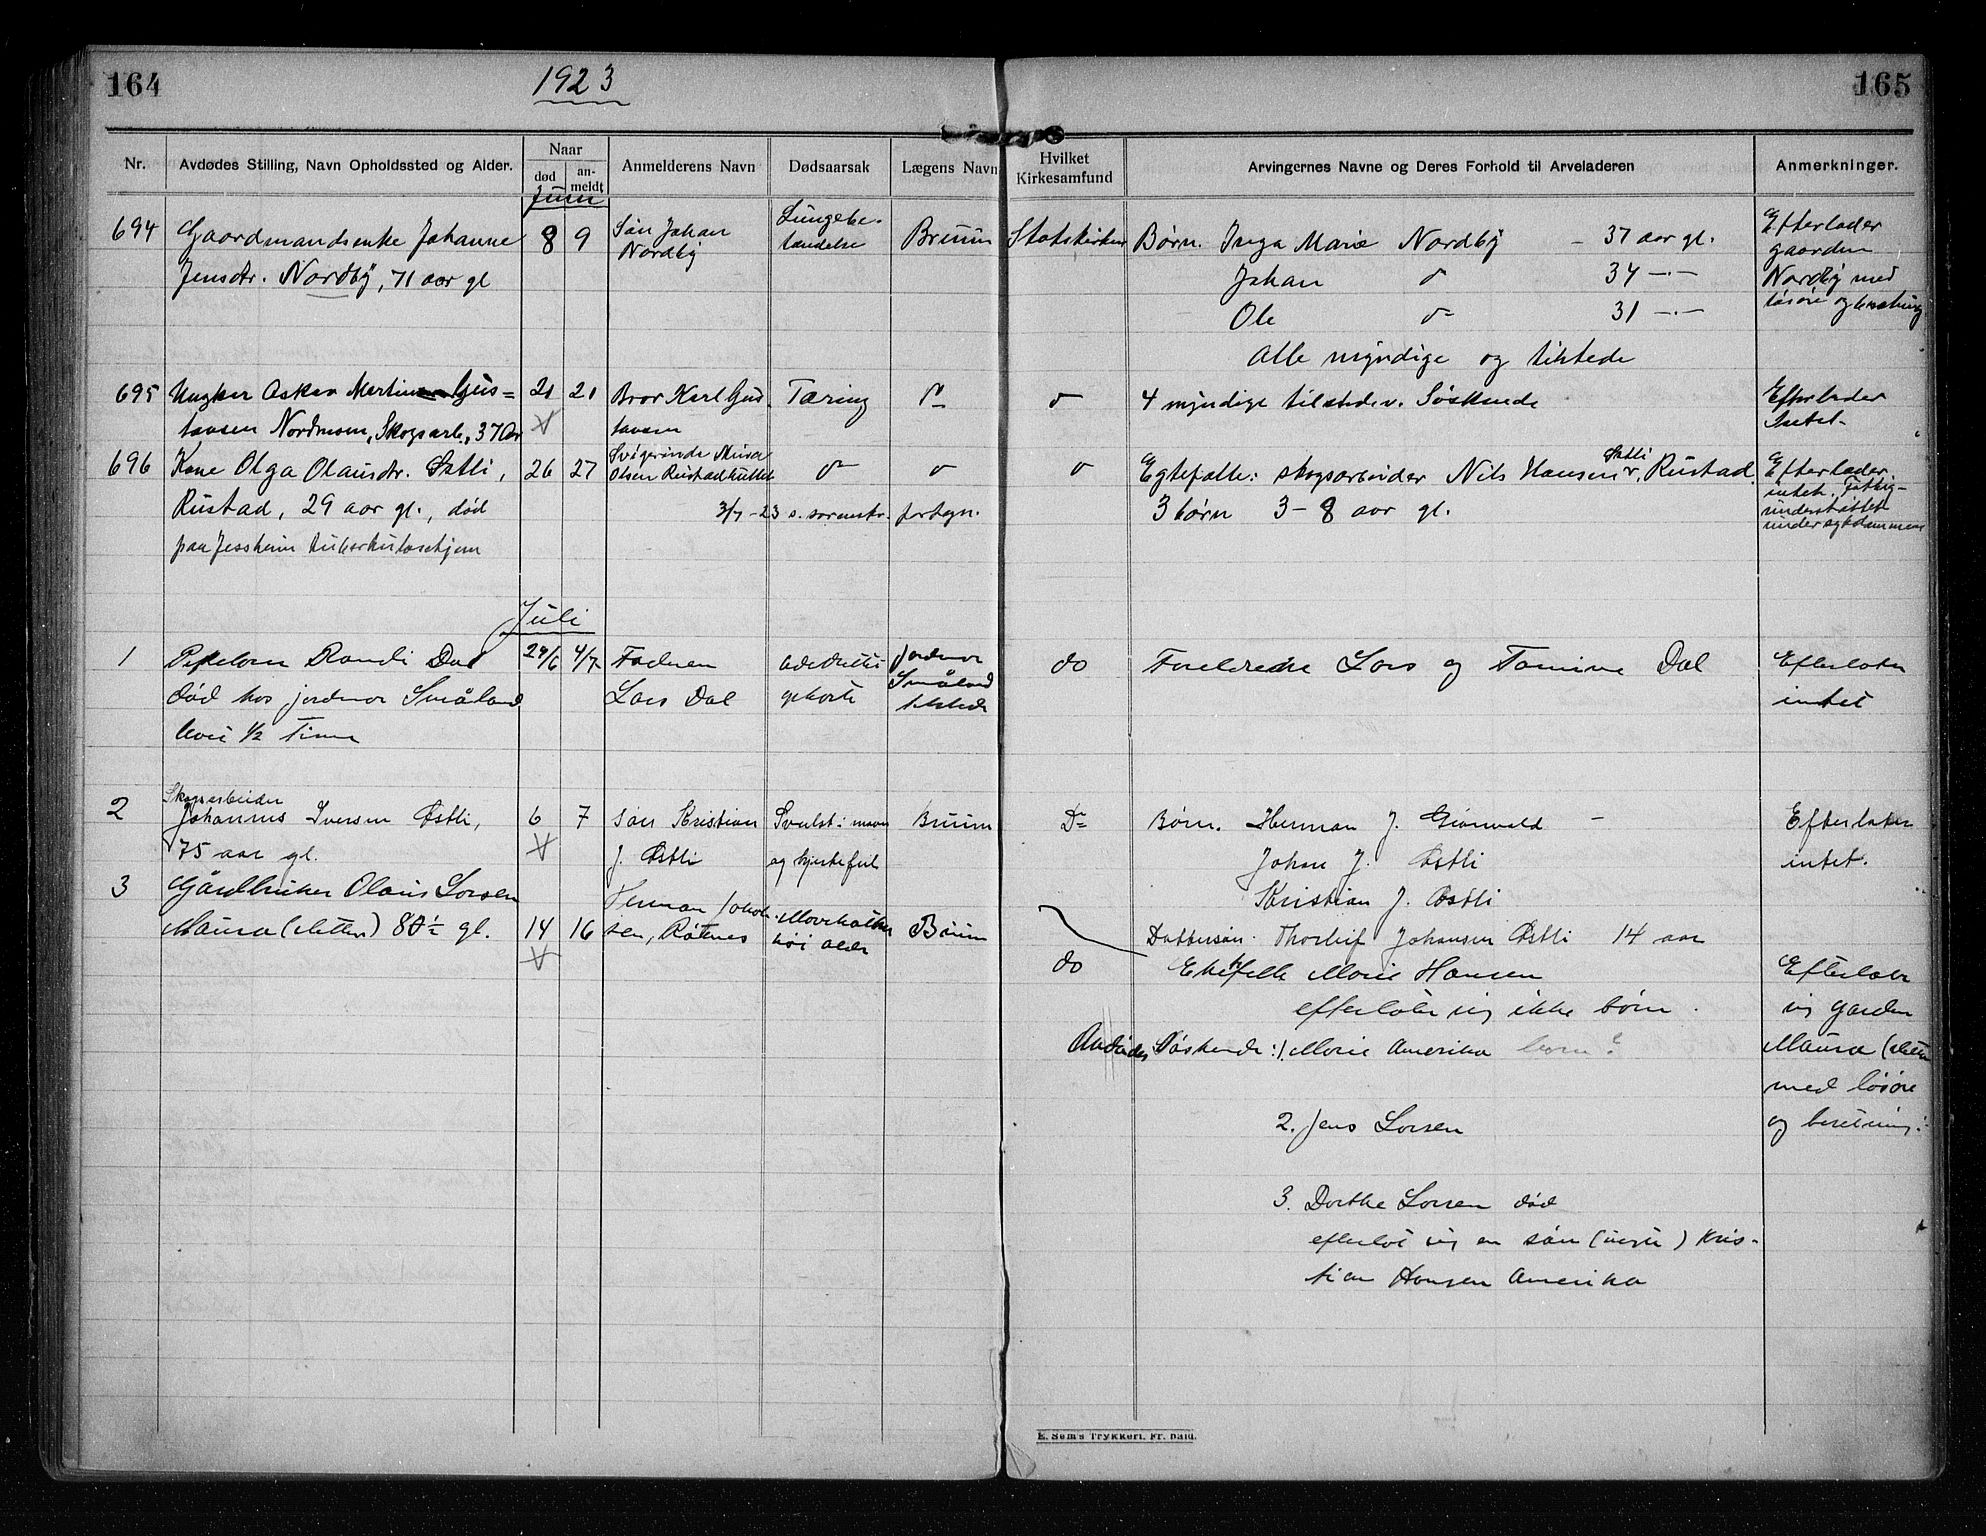 164
1923
165
Nr.
Avdødes Stilling, Navn Opholdssted og Alder.
Naar
død
an-
meldt
Anmelderens Navn
Dødsaarsak
Lægens Navn
Hvilket
Kirkesamfund
Arvingernes Navne og Deres Forhold til Arveladeren
Anmerkninger.
Juni
694
Gaardmandsenke Johanne
Jensdtr. Nordby, 71 aar gl
8
9
Søn Johan
Nordby
Lungebe-
tændelse
Bruun
Statskirken
Børn. Inga Marie Nordby - 37 aar gl.
Johan do 34 -·-
Ole do 31 -·-
Alle myndige og tilstede
Efterlader
gaarden
Nordby med
løsøre og besætning
695
Ungkar Oskar Martin Gus=
tavsen Nordmoen, Skogsarb., 37 Aar
21
21
Bror Karl Gus-
tavsen
Tæring
do
do
4 myndige tilstedev. Søskende
Efterlader
Intet.
696
Kone Olga Olausdtr. Sætli,
Rustad, 29 aar gl., død
paa Jessheim tuberkulosehjem
26
27
Svigerinde
Olsen
do
do
3/7 - 23 s. sorenskr. fortegn.
do
Egtefælle: skogsarbeider Nils Hansen Sætli v. Rustad.
3 børn 3-8 aar gl.
Efterlader
intet. Fattig-
understøttet
under sykdommen
Juli
1
Pikebarn Randi Dal
død hos jordmor Småland
levet 1/2 Time
29/6
4/7
Faderen
Lars Dal
Jordmor
Småland
tilstede
do
Foreldrene Lars og Tomine Dal
Efterlater
intet
2
Skogsarbeider
Johannes Iversen Østli,
75 aar gl.
6
7
søn Kristian
J. Østli
Svulst i maven
og hjertefeil
Bruun
Do
Børn. Herman J. Grønvold -
Johan J. Østli
Kristian J. Østli
Dattersøn. Thorleif Johansen Østli 14 aar
Efterlater
intet.
3
Gårdbruker Olaus Larsen
Maura (sletten) 80 1/2 gl.
14
16
Herman Jakob-
sen, Råtnes
høi alder
Bruun
do
Ektefelle Marie Hansen
efterlater sig ikke børn.
Avdødes Søskende: 1. Marie Amerika born?
2. Jens Larsen
3. Dorthe Larsen død
efterlot sig en søn (uegte) Kris-
tian Hansen Amerika
Efterlater
sig garden
Maura (sletten
med løsøre
og besetning.
E. Sem's Trykkeri, Fr.hald.